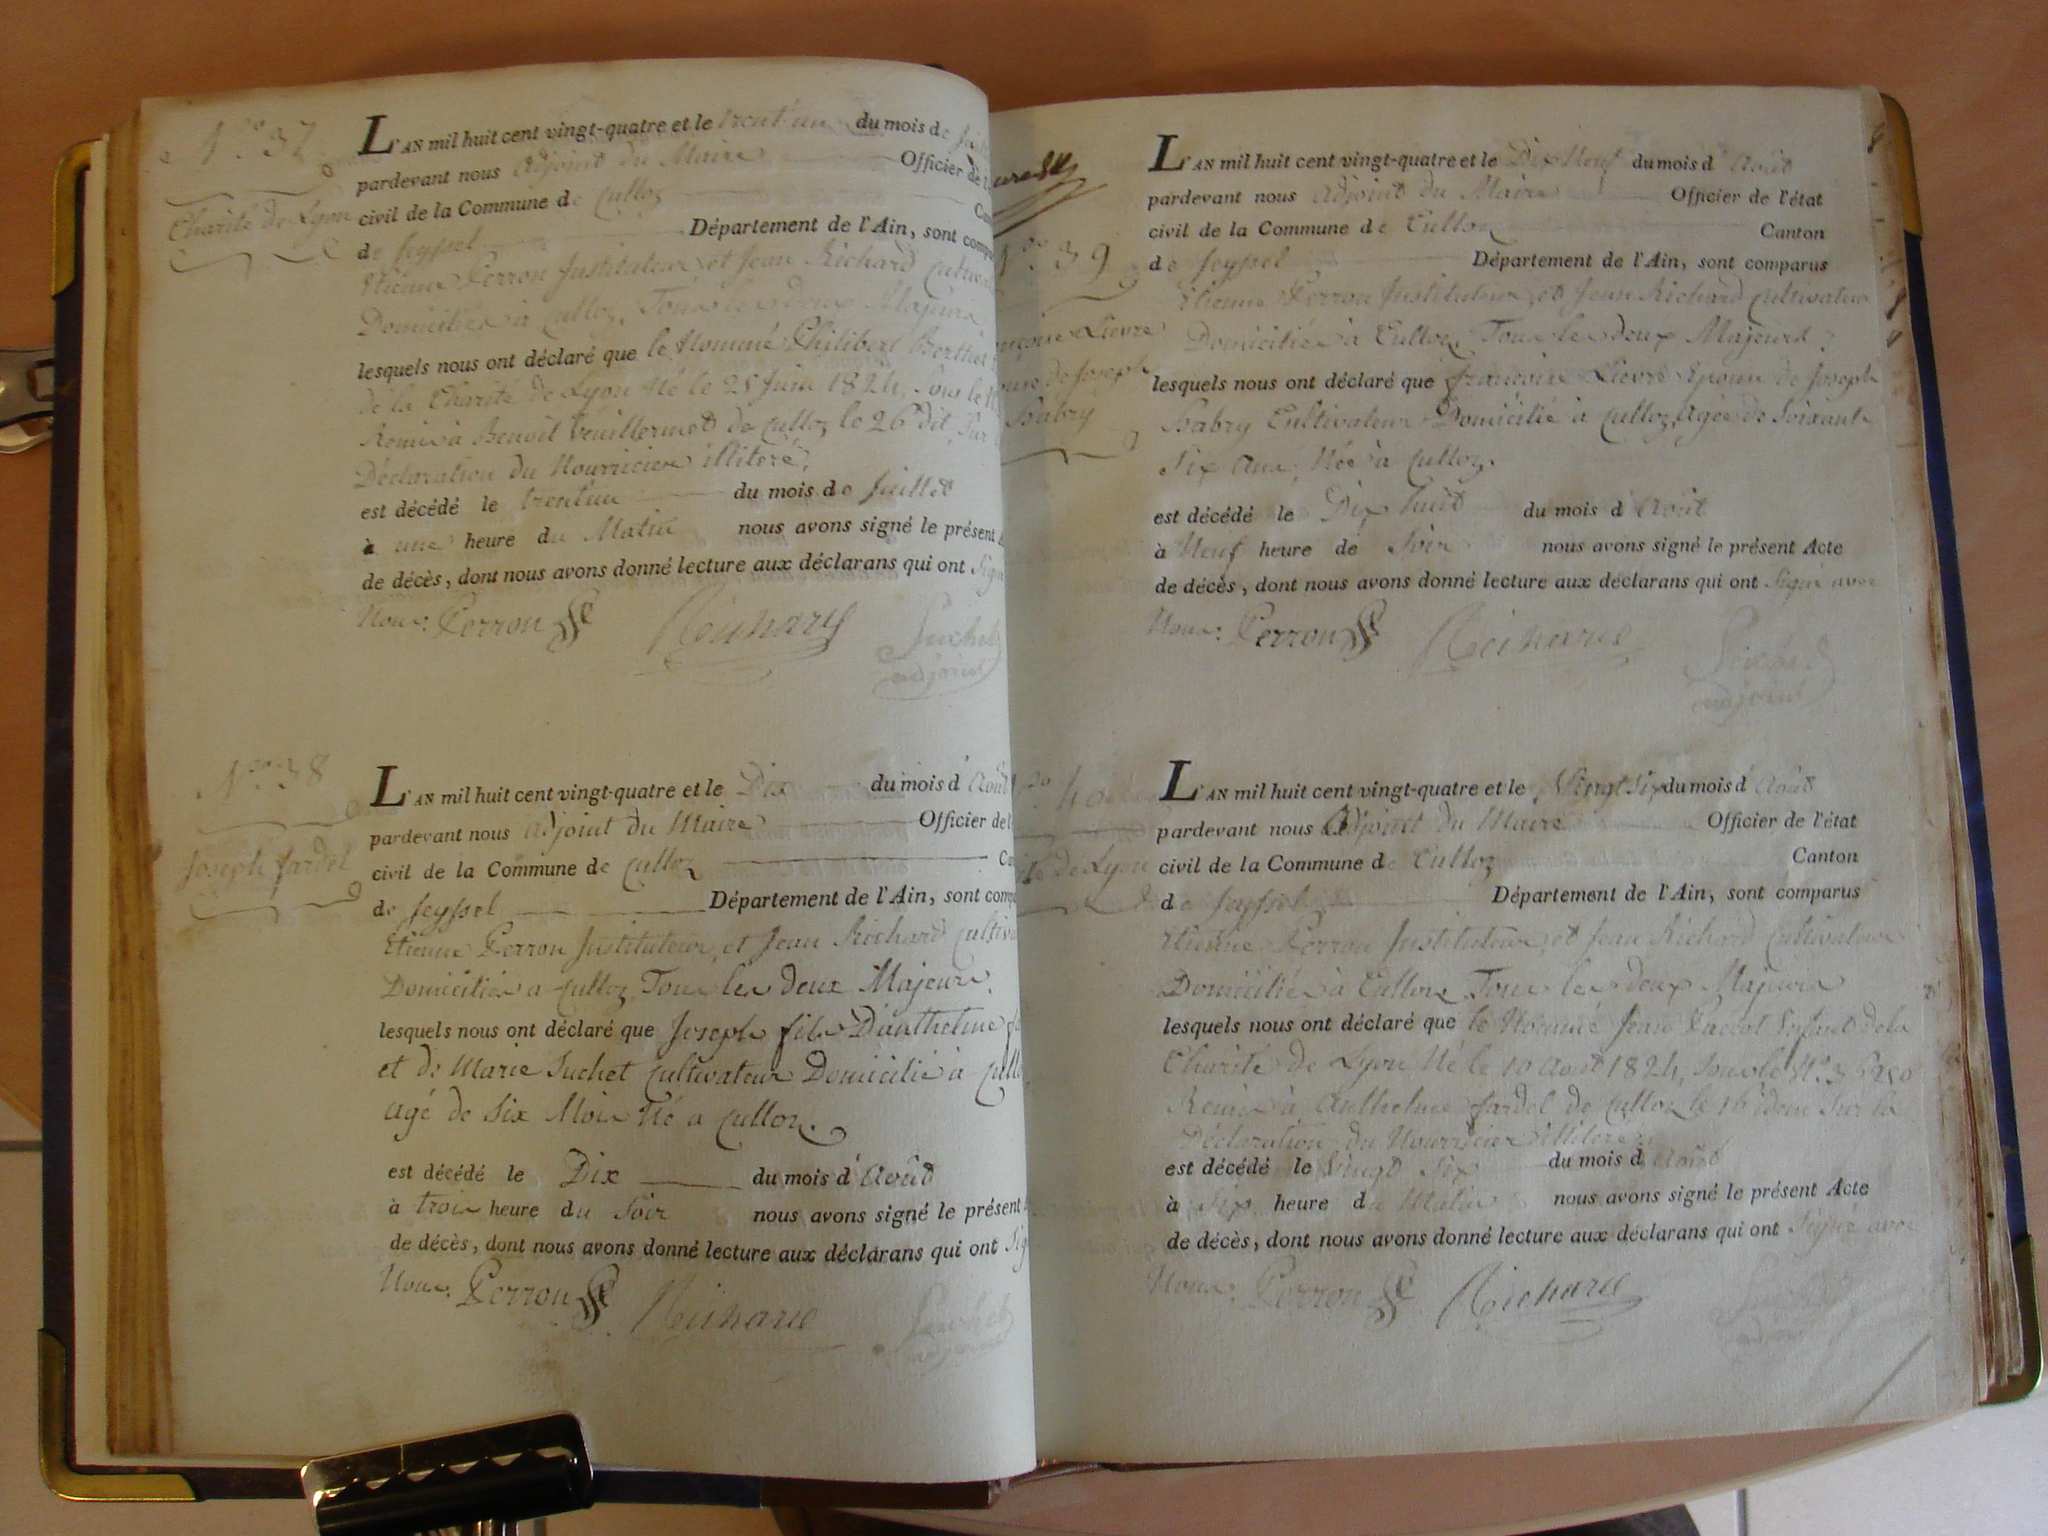 N.º 37
Charité de Lyon
L'AN mil huit cent vingt-quatre et le trent'un du mois de
pardevant nous adjoint du Maire Officier de l
civil de la Commune de Culloz
de Seyssel Département de l'Ain, sont comp
Etienne Perron Instituteur et Jean Richard Cultiva
Domiciliés à Culloz, Tous les deux Majeurs
lesquels nous ont déclaré que le Nommé Philibert Berthet
de la Charité de Lyon Né le 25 Juin 1824, Sous le
Remis à Benoit Vuillermet de Culloz le 26 dit, Sur
Déclaration du Nourricier illiteré,
est décédé le trent'un du mois de Juillet
à une heure du Matin nous avons signé le présent
de décès, dont nous avons donné lecture aux déclarans qui ont Sign
Nous. Perron Richard Suchet
adjoint
N.º 38
Joseph Jardel
L'AN mil huit cent vingt-quatre et le Dix du mois d'Août
pardevant nous adjoint du Maire Officier de l
civil de la Commune de Culloz
de Seyssel Département de l'Ain, sont comp
Etienne Perron Instituteur, et Jean Richard Cultiv
Domiciliés a Culloz Tous les deux Majeurs.
lesquels nous ont déclaré que Joseph fils D'anthelme
et de Marie Suchet Cultivateur Domicilié à Cullo
agé de Six Mois Né a Culloz.
est décédé le Dix du mois d'Août
à trois heure du Soir nous avons signé le présent
de décès, dont nous avons donné lecture aux déclarans qui ont Sig
Nous. Perron Richard Suchet
adjoint
N.º 39
Lievre
de Joseph
Babry
L'AN mil huit cent vingt-quatre et le Dix Neuf du mois d'Août
pardevant nous Adjoint du Maire Officier de l'état
civil de la Commune de Culloz Canton
de Seyssel Département de l'Ain, sont comparus
Etienne Perron Instituteur, et Jean Richard Cultivateur
Domiciliés à Culloz, Tous les deux Majeurs,
lesquels nous ont déclaré que francoise Lievre Epouse de Joseph
Babry Cultivateur Domicilié à Culloz, Agée de Soixante
Six ans, Née à Culloz.
est décédé le Dix huit du mois d'Août
à Neuf heure de Soir nous avons signé le présent Acte
de décès, dont nous avons donné lecture aux déclarans qui ont Signé avec
Nous. Perron Richard Suchet
adjoint
40
de Lyon
L'AN mil huit cent vingt-quatre et le Vingt Six du mois d'Août
pardevant nous Adjoint du Maire Officier de l'état
civil de la Commune de Culloz Canton
de Seyssel Département de l'Ain, sont comparus
Etienne Perron Instituteur, et Jean Richard Cultivateur
Domiciliés à Culloz, Tous les deux Majeurs
lesquels nous ont déclaré que le Nommé Jean Enfant de la
Charité de Lyon Né le 10 Août 1824, Sous le N.º
Remis à Anthelme Jardel de Culloz le 16 idem Sur la
Déclaration du Nourricier illiteré
est décédé le Vingt Six du mois d'Août
à Six heure du Matin nous avons signé le présent Acte
de décès, dont nous avons donné lecture aux déclarans qui ont Signé avec
Nous. Perron Richard Suchet